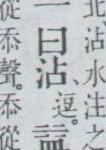 北沾水注之
一曰沾、逗。
從忝聲。忝從